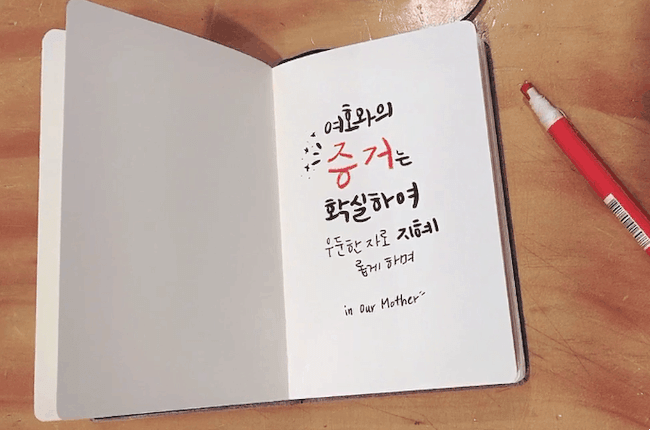 여호와의
증거는
확실하여
우둔한 자로 지혜
롭게 하며
in Our Mother